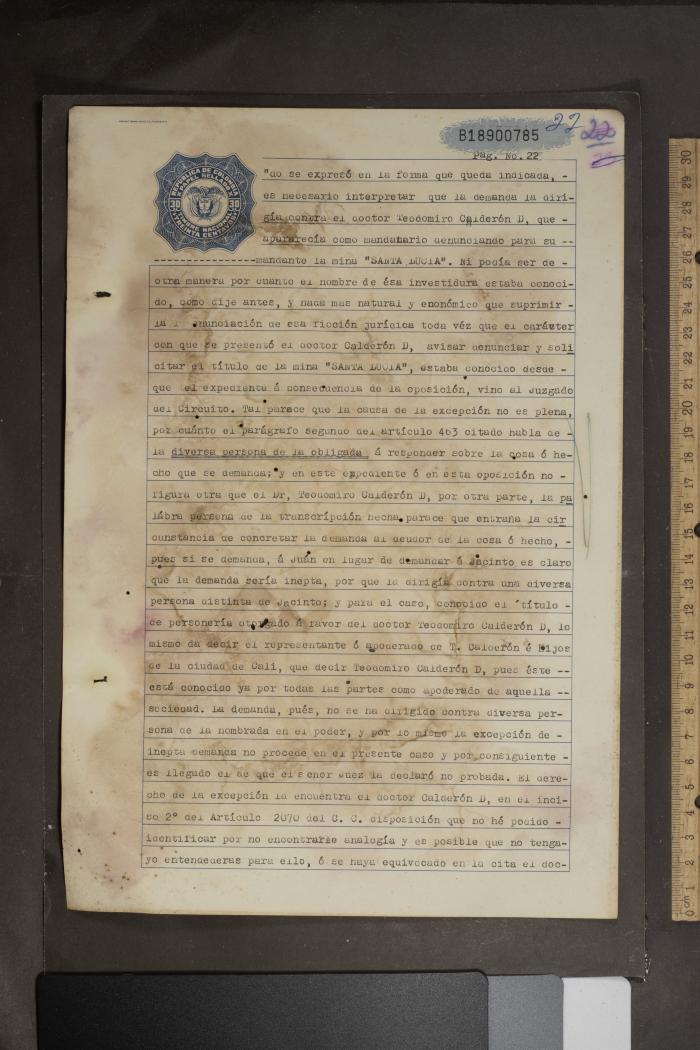 B18900785
22 22
Pag. No. 22
REPUBLICA DE COLOMBIA
PAPEL SELLADO
30 30
TIMBRE NACIONAL
TREINTA CENTAVOS
"do se expresó en la forma que queda indicada, -
es necesario interpretar que la demanda la diri-
gía contra el doctor Teodomiro Calderón D, que -
apararecía como mandatario denunciando para su --
mandante la mina "SANTA LUCIA". Ni podía ser de -
otra manera por cuanto el nombre de ésa investidura estaba conoci-
do, como dije antes, y nada mas natural y enonómico que suprimir -
la enunciación de esa ficción jurídica toda véz que el carácter
con que se presentó el doctor Calderón D, avisar denunciar y soli
citar el título de la mina "SANTA LUCIA", estaba conocido desde -
que el expediente á consecuencia de la oposición, vino al Juzgado
del Circuito. Tal parece que la causa de la excepción no es plena,
por cuánto el parágrafo segundo del artículo 463 citado habla de -
la diversa persona de la obligada á responder sobre la cosa ó he-
cho que se demanda; y en este expediente ó en esta oposición no -
figura otra que el Dr, Teodomiro Calderón D, por otra parte, la pa
lábra persona de la transcripción hecha parece que entraña la cir
cunstancia de concretar la demanda al deudor de la cosa ó hecho, -
pues si se demanda, á Juán en lugar de demandar á Jacinto es claro
que la demanda sería inepta, por que la dirigía contra una diversa
persona distinta de Jacinto; y para el caso, conocido el título -
de personería otorgado á favor del doctor Teodomiro Calderón D, lo
mismo da decir el representante ó apoderado de T. Calderón é Hijos
de la ciudad de Cali, que decir Teodomiro Calderón D, pues éste --
está conocido ya por todas las partes como apoderado de aquella --
sociedad. La demanda, pués, no se ha dirigido contra diversa per-
sona de la nombrada en el poder, y por lo mismo la excepción de -
inepta demanda no procede en el presente caso y por consiguiente -
es llegado el de que el señor Juez la declaró no probada. El dere-
cho de la excepción la encuentra el doctor Calderón D, en el inci-
so 2° del Artículo 2070 del C. C. disposición que no hé podido -
identificar por no encontrarle analogía y es posible que no tenga-
yo entendederas para ello, ó se haya equivocado en la cita el doc-